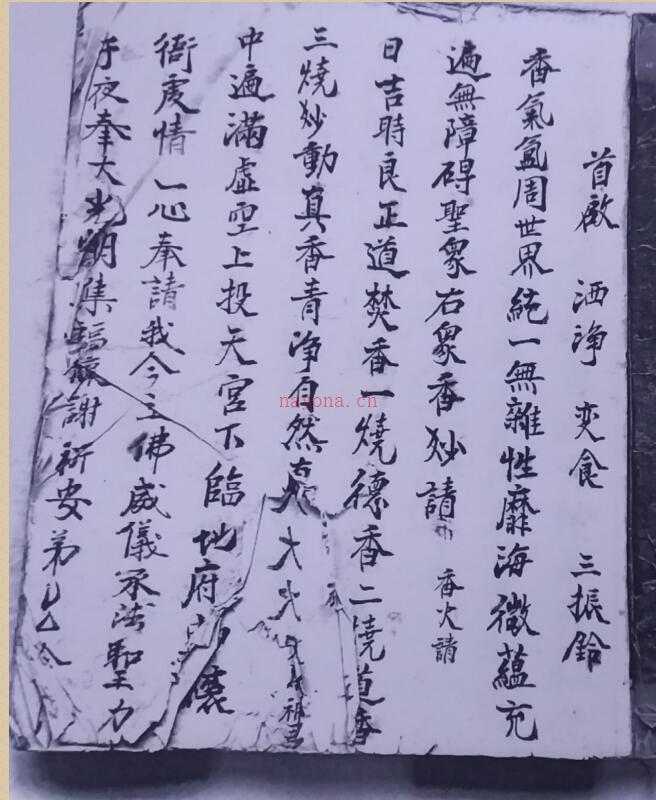 首啟 洒淨 变食 三振鈴
香氣氳周世界純一無雜性靡海微蘊充
遍無障碍聖衆右衆香妙請 香火請
日吉時良正道焚香一燒德香二燒道香
三燒妙動真香青净自然 大 祖
中遍滿虛空上投天宮下臨地府
衙虔情一心奉請我今主佛威儀承法聖力
夜奉大光明集福 謝祈安弟
nayona.cn